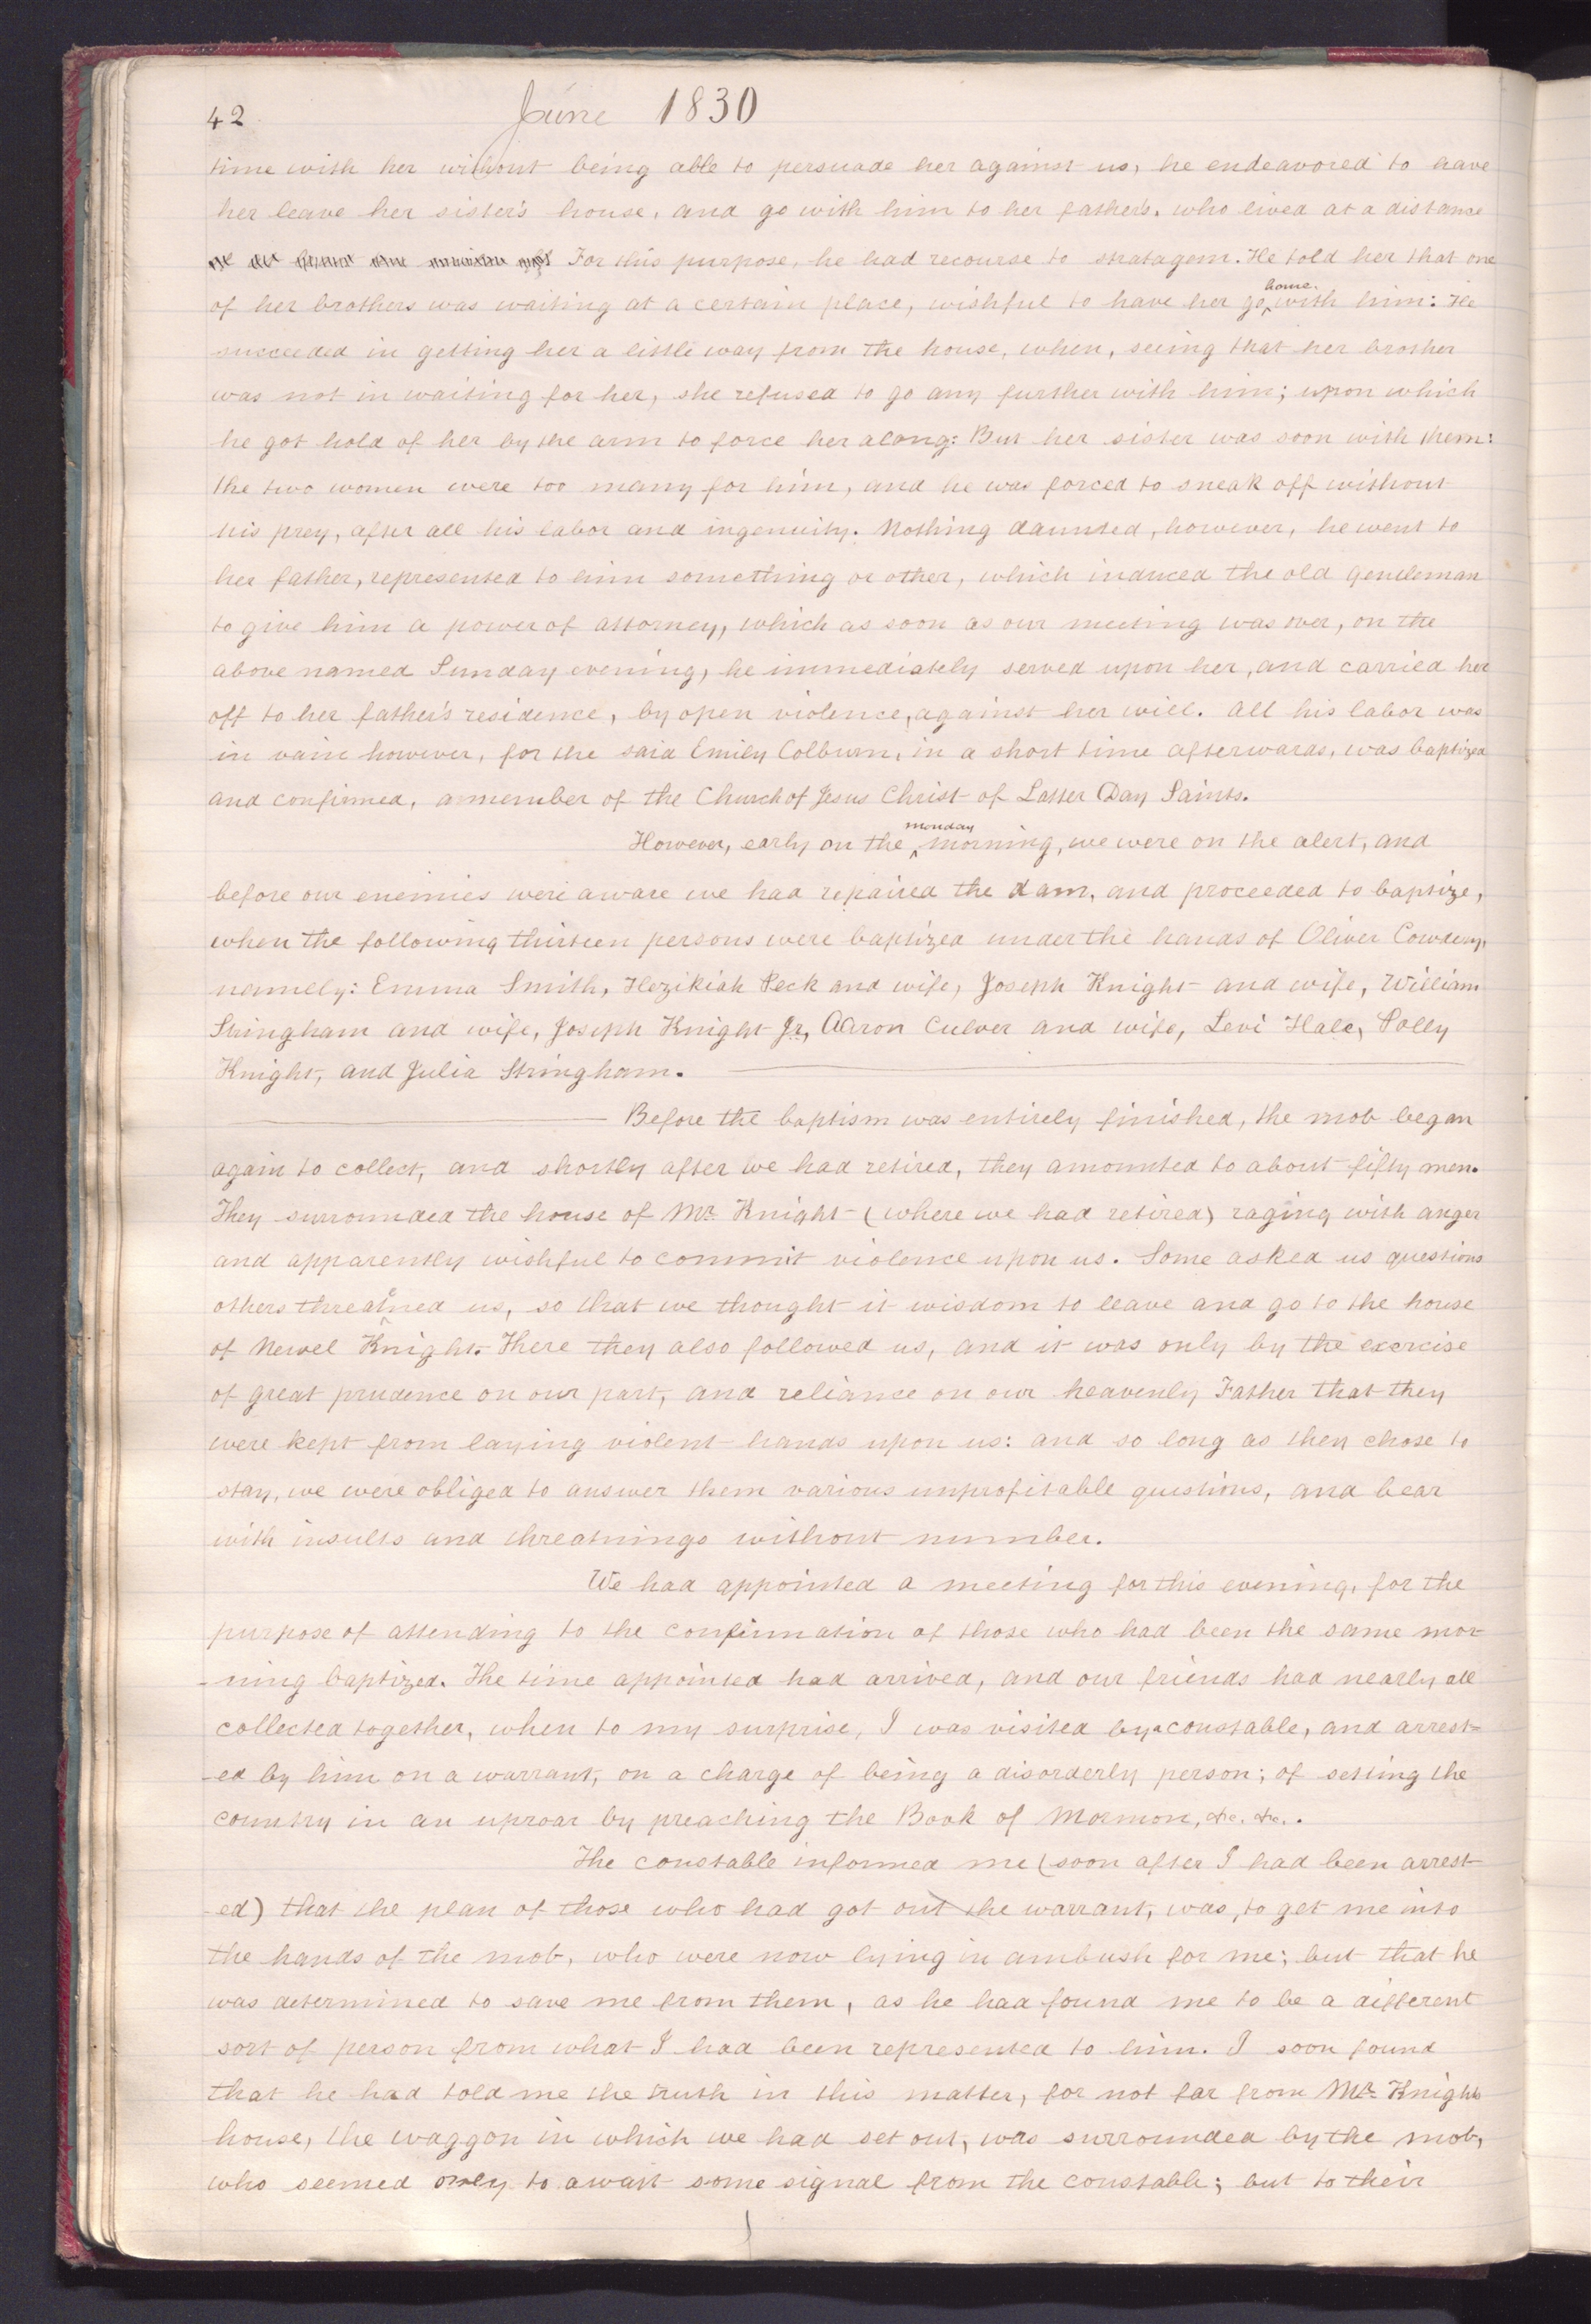 42
June 1830
time with her without being able to persuade her against us, he endeavored to have
her leave her sister's house, and go with him to her father's, who lived at a distance
For this purpose, he had recourse to stratagem. He told her that one
of her brothers was waiting at a certain place, wishful to have her go home. with him: He
succeeded in getting her a little way from the house, when, seeing that her brother
was not in waiting for her, she refused to go any further with him; upon which
he got hold of her by the arm to force her along: But her sister was soon with them:
the two women were too many for him, and he was forced to sneak off without
his prey, after all his labor and ingenuity. Nothing daunted, however, he went to
her father, represented to him something or other, which induced the old gentleman
to give him a power of attorney, which as soon as our meeting was over, on the
above named Sunday evening, he immediately served upon her, and carried her
off to her father's residence, by open violence, against her will. All his labor was
in vain however, for the said Emily Colburn, in a short time afterwards, was baptized
and confirmed, a member of the Church of Jesus Christ of Latter Day Saints.
However, early on the monday morning, we were on the alert, and
before our enemies were aware we had repaired the dam, and proceeded to baptize,
when the following thirteen persons were baptized under the hands of Oliver Cowdery,
namely: Emma Smith, Hezikiah Peck and wife, Joseph Knight and wife, William
Stringham and wife, Joseph Knight Jr, Aaron Culver and wife, Levi Hale, Polly
Knight, and Julia Stringham.
Before the baptism was entirely finished, the mob began
again to collect, and shortly after we had retired, they amounted to about fifty men.
They surrounded the house of Mr. Knight (where we had retired) raging with anger
and apparently wishful to commit violence upon us. Some asked us questions
others threatened us, so that we thought it wisdom to leave and go to the house
of Newel Knight. There they also followed us, and it was only by the exercise
of great prudence on our part, and reliance on our heavenly Father that they
were kept from laying violent hands upon us: and so long as they chose to
stay, we were obliged to answer them various unprofitable questions, and bear
with insults and threatnings without number.
We had appointed a meeting for this evening, for the
purpose of attending to the confirmation of those who had been the same mor-
-ning baptized. The time appointed had arrived, and our friends had nearly all
collected together, when to my surprise, I was visited by a constable, and arrest=
-ed by him on a warrant, on a charge of being a disorderly person; of setting the
country in an uproar by preaching the Book of Mormon, &c. &c..
The constable informed me (soon after I had been arrest
-ed) that the plan of those who had got out the warrant, was, to get me into
the hands of the mob, who were now lying in ambush for me; but that he
was determined to save me from them, as he had found me to be a different
sort of person from what I had been represented to him. I soon found
that he had told me the truth in this matter, for not far from Mr. Knights
house, the waggon in which we had set out, was surrounded by the mob,
who seemed only to await some signal from the constable; but to their